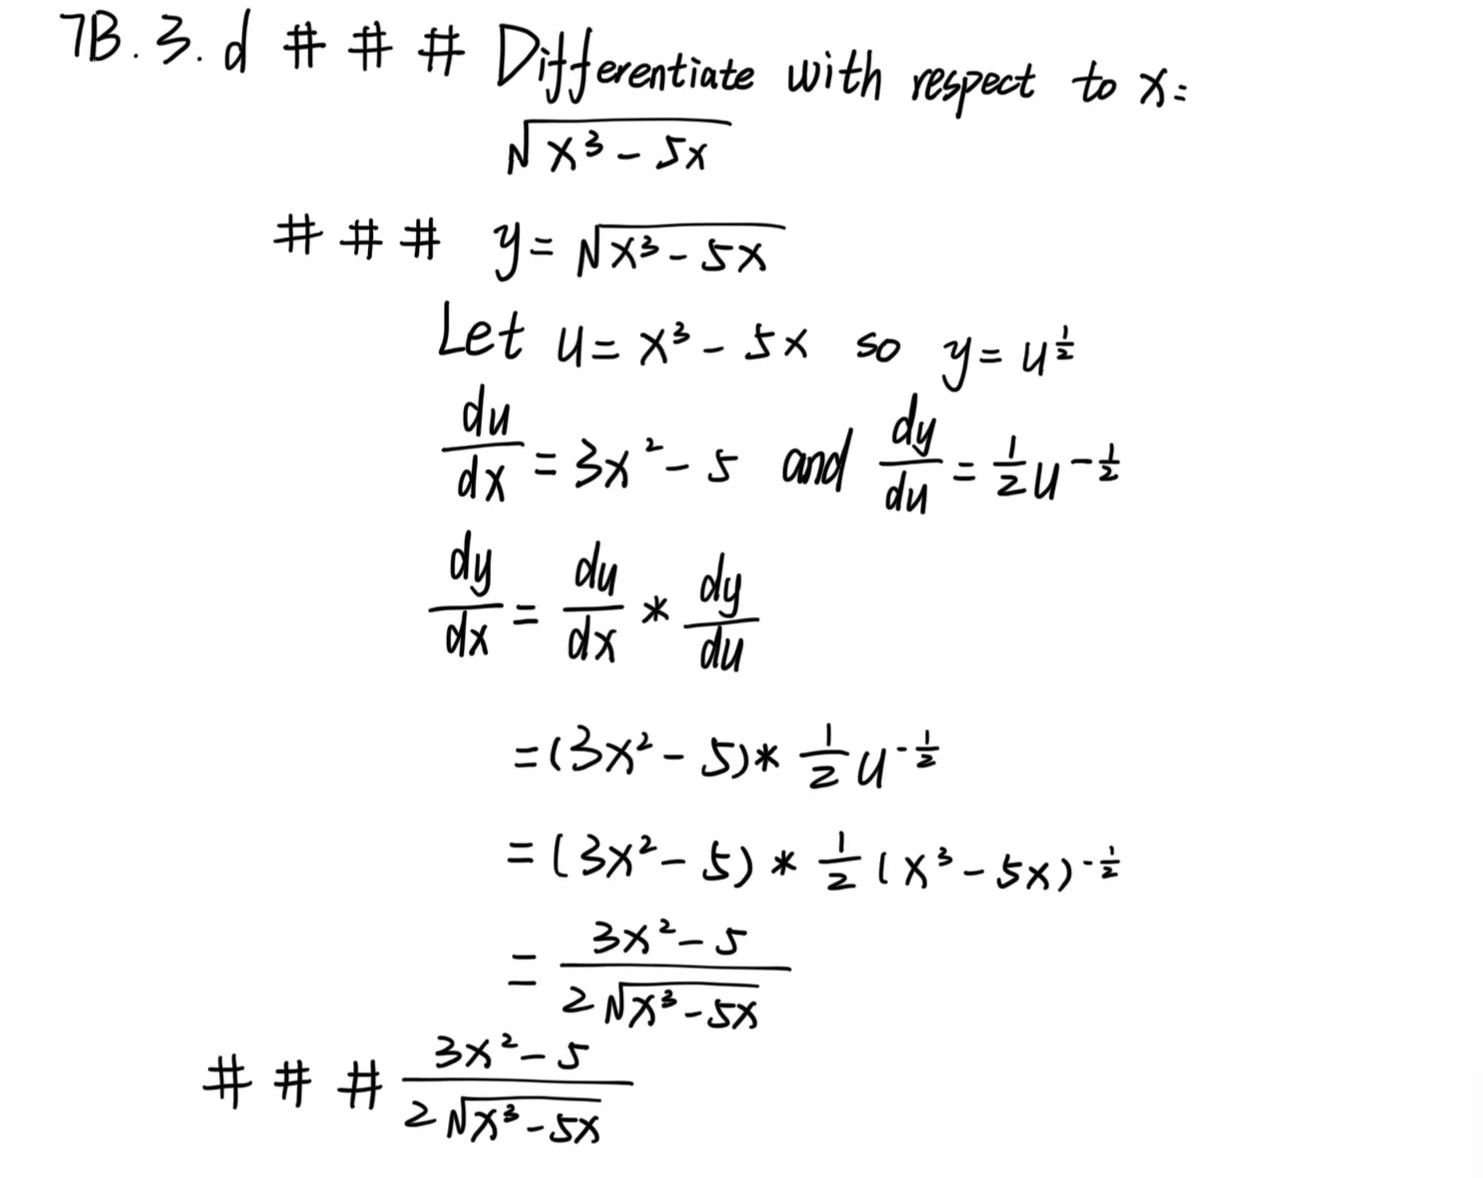 7B.3.d # # # Differentiate with respect to x:
√(x³ - 5x)
# # # y = √(x³ - 5x)
Let u = x³ - 5x so y = u^(1/2)
du/dx = 3x² - 5 and dy/du = 1/2 u^(-1/2)
dy/dx = du/dx * dy/du
= (3x² - 5) * 1/2 u^(-1/2)
= (3x² - 5) * 1/2 (x³ - 5x)^(-1/2)
= (3x² - 5)/(2√(x³ - 5x))
# # # (3x² - 5)/(2√(x³ - 5x))